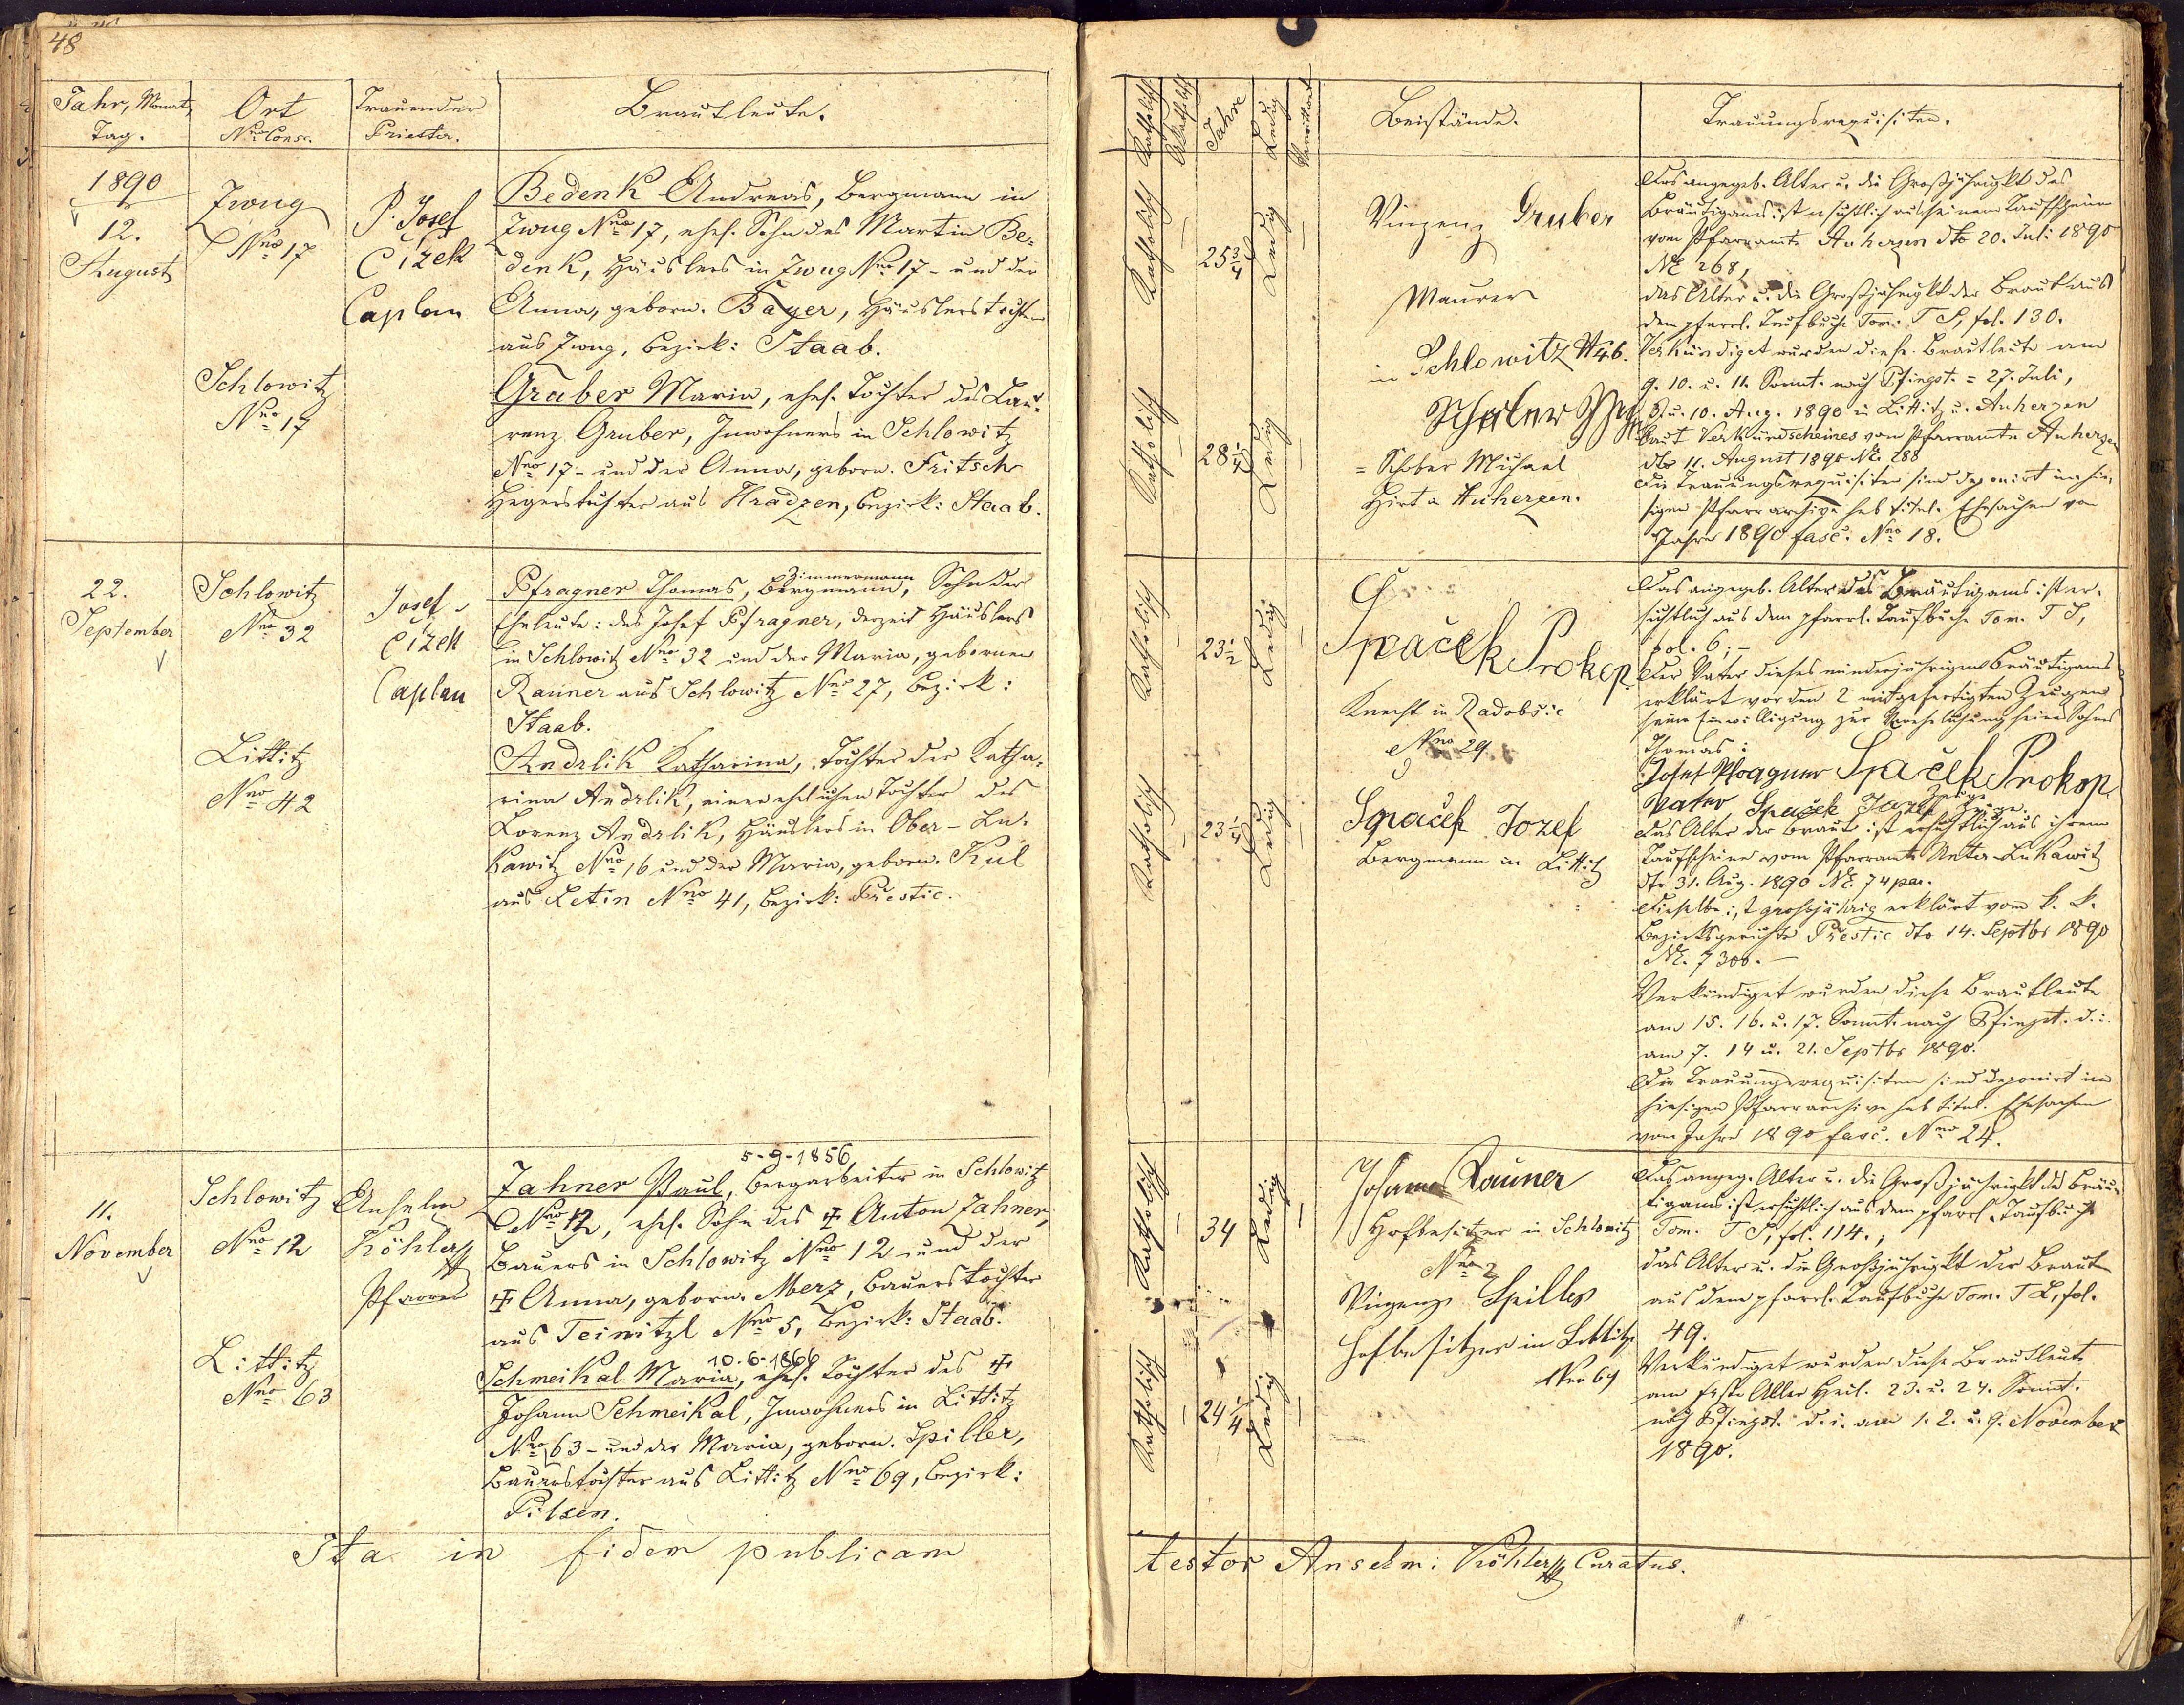 48
Jahr, Monat,
Tag.
Ort
Nro Consc.
Trauender
Priester.
Brautleute.
1890
12.
August
Zwug
Nro 17
P. Josef
Čížek
Caplan
Bedenk Andreas, Bergmann in
Zwug Nro 17, ehel. Sohn des Martin Be-
denk, Häuslers in Zwug Nro 17 - und der
Anna, geborn. Bayer, Häuslerstochter
aus Zwug, Bezirk: Staab.
Schlowitz
Nro 17
Gruber Maria, ehel. Tochter des Lau-
renz Gruber, Inwohners in Schlowitz
Nro 17 - und der Anna, geborn. Fritsch
Hegerstochter aus Hradzen, Bezirk: Staab.
22.
September
Schlowitz
Nro 32
Josef
Čížek
Caplan
Zimmermann
Pfragner Thomas, Bergmann, Sohn der
Eheleute: des Josef Pfragner, derzeit Häuslers
in Schlowitz Nro 32 und der Maria, gebornen
Rauner aus Schlowitz Nro 27, Bezirk:
Staab.
Littitz
Nro 42
Andrlik Katharina, Tochter der Katha-
rina Andrlik, einer ehelichen Tochter des
Lorenz Andrlik, Häuslers in Ober-Lu-
kawitz Nro 16 und der Maria, geborn. Kul
aus Letin Nro 41, Bezirk: Přestic.
11.
November
Schlowitz
Nro 12
Anselm
Köhler
Pfarrer
5-9-1856
Zahner Paul, Bergarbeiter in Schlowitz
Nro 12, ehel. Sohn des † Anton Zahner,
Bauers in Schlowitz Nro 12 und der
† Anna, geborn. Merz, Bauerstochter
aus Teinitzl Nro 5, Bezirk: Staab.
Littitz
Nro 63
10.6.1866
Schmeikal Maria, ehel. Tochter des †
Johann Schmeikal, Inwohners in Littitz
Nro 63 - und der Maria, geborn. Spiller,
Bauerstochter aus Littitz Nro 69, Bezirk:
Pilsen.
Ita in fidem publicam
Katholisch
Akatholisch
Jahre
Ledig
Verwitwet
Beistände.
Trauungsrequisiten.
Katholisch
25 3/4
Ledig
Vinzenz Gruber
Maurer
in Schlowitz N 46.
Katholisch
28 1/4
Ledig
= Schober Michael
Hirt in Auherzen.
Das angegeb. Alter u. die Großjährigkt des
Bräutigams ist ersichtlich aus seinem Taufscheine
vom Pfarramte Auherzen dto 20. Juli 1890
NE 268,
das Alter u. die Großjährigkt der Braut aus
dem pfarrl. Taufbuche Tom. T S, fol. 130.
Verkündiget wurden diese Brautleute am
9. 10. u. 11. Sonnt. nach Pfingst. = 27. Juli,
3. u. 10. Aug. 1890 in Littitz u. Auherzen
laut Verkündscheines vom Pfarramte Auherzen
dto 11. August 1890 NE. 288
Die Trauungsrequisiten sind deponirt im hie-
sigen Pfarrarchive sub titul. Ehesachen vom
Jahre 1890 fasc. Nro 18.
Katholisch
23 1/2
Ledig
Spaček Prokop
Knecht in Radobšic
Nro 29
Katholisch
23 1/4
Ledig
Spaček Jozef
Bergmann in Littitz
Das angegeb. Alter des Bräutigams ist er-
sichtlich aus dem pfarrl. Taufbuche Tom. T S,
fol. 6; -
Der Vater dieses minderjährigen Bräutigams
erklärt vor den 2 mitgefertigten Zeugen
seine Einwilligung zur Verehelichung seines Sohnes
Thomas:
Josef Pfragner Spaček Prokop
Zeuge
Vater Spaček Jozef Zeuge.
Das Alter der Braut ist ersichtlich aus ihrem
Taufscheine vom Pfarramte Unter-Lukawitz
dto 31. Aug. 1890 NE. 74 par.
Dieselbe ist großjährig erklärt vom k. k.
Bezirksgerichte Přestic dto 14. Septbr 1890
NE. 7300. -
Verkündiget wurden diese Brautleute
am 15. 16. u. 17. Sonnt. nach Pfingst. d. i.
am 7. 14 u. 21. Septbr 1890.
Die Trauungsrequisiten sind deponirt im
hiesigen Pfarrarchive sub titul. Ehesachen
vom Jahre 1890 fasc. Nro 24.
Katholisch
34
Ledig
Johann Rauner
Hofbesitzer in Schlowitz
Nro 2
Katholisch
24 1/4
Ledig
Vinzenz Spiller
Hofbesitzer in Littitz
Nro 69
Das angeg. Alter u. die Großjährigkt des Bräu-
tigams ist ersichtlich aus dem pfarrl. Taufbuche
Tom. T S, fol. 114.;
das Alter u. die Großjährigkt der Braut
aus dem pfarrl. Taufbuche Tom. T L, fol.
49.
Verkündiget wurden diese Brautleute
am Feste Aller Heil. 23. u. 24. Sonnt.
nach Pfingst. d. i. am 1. 2. u. 9. November
1890.
testor Anselm: Köhler Curatus.